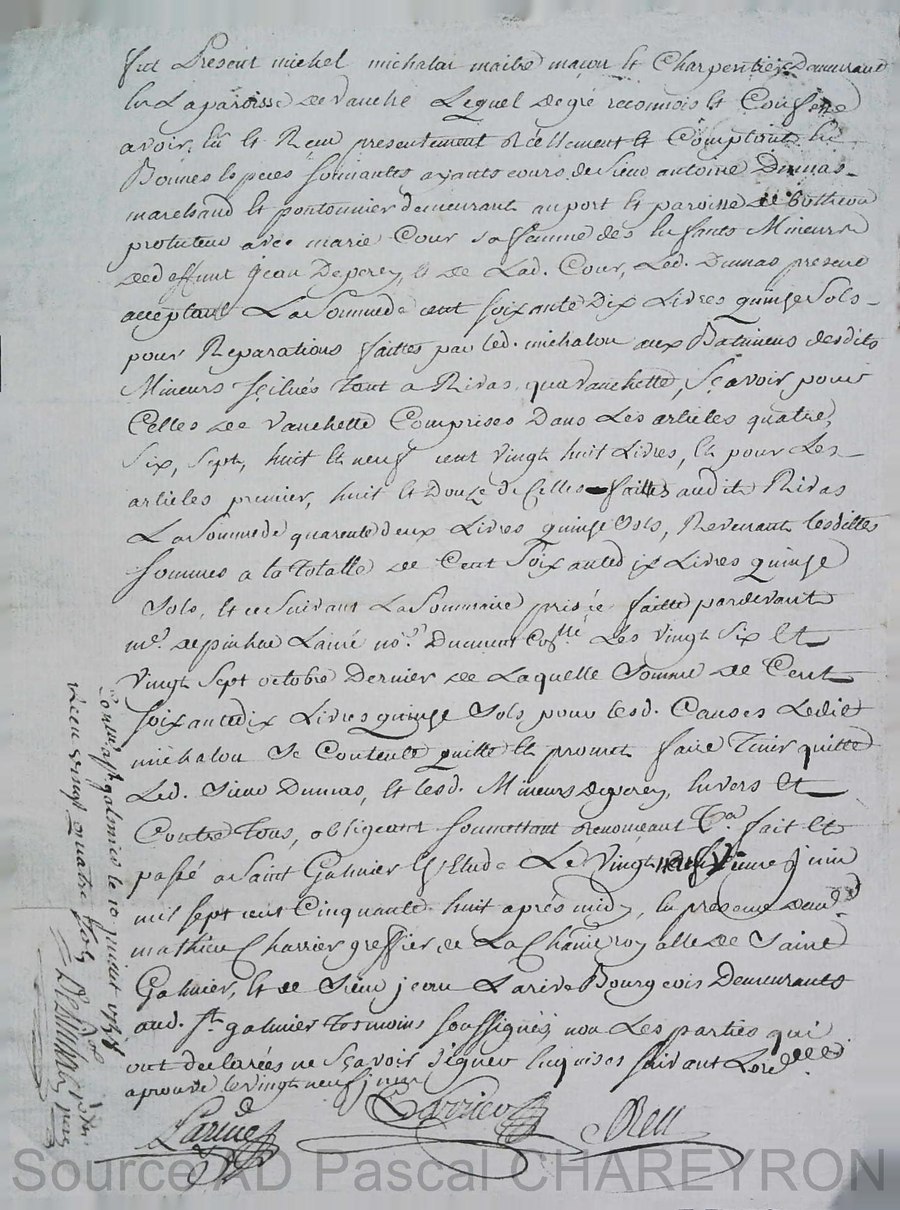 fut Present michel michalon maitre maçon et Charpentier Demeurant
En La paroisse de vauche Lequel de gré reconnois et Confesse
avoir Eu et Reçu presentement Réellement et Comptant En
Bonnes Especes sonnantes ayants cours de Sieur antoine Dumas
marchand et pontonnier demeurant au port et paroisse de Bottheon
protuteur avec marie Cour sa femme des Enfants Mineurs
de deffunt jean Deperey, et de Lad. Cour, Led. Dumas present
acceptant La Somme de cent soixante Dix Livres quinze Sols
pour Reparations faittes par led. michalon aux Batimens desdits
Mineurs scitués tant a Rivas, qua vauchette, Sçavoir pour
Celles de vauchette Comprises Dans Les articles quatre,
Six, Sept, huit et neuf cent vingt huit Livres, et pour Les
articles premier, huit et Douze de Celles faittes audit Rivas
La Somme de quarente deux Livres quinze Sols, Revenant lesdittes
Sommes a la totalle de Cent Soixante dix Livres quinze
Sols, et ce suivant La Sommaire prisée faitte pardevant
me. depinhac Lainé nore. Dument Collé Les vingt Six et
vingt Sept octobre Dernier de Laquelle Somme de Cent
Soixante dix Livres quinze Sols pour lesd. Causes Ledit
michalon Se Contente quitte et promet faire tenir quitte
Led. Sieur Dumas, et lesd. Mineurs deperey, Envers et
Contre tous, obligeant soumettant Renonceant &a. fait et
passé a Saint Galmier Es Etude Le vingt neufvieme Juin
mil sept cent Cinquante huit après midy, En presence de
mathieu Charrier greffier de La Chatnie royalle de Saint
Galmier, et de Sieur jean Larive Bourgeois Demeurants
aud. St. galmier tesmoins soussignés, non Les parties qui
ont declarées ne sçavoir signer Enquises suivant Lord
aprouvé le vingt neuf juin
Larive Charrier
Conlé a St galmier le 10 juillet 1758
Recu vingt quatre sols